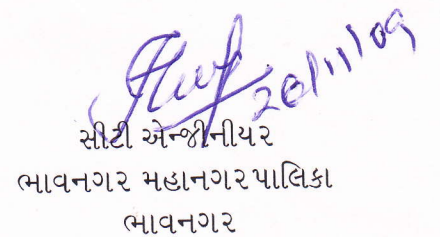 20/11/09
સીટી એન્જીનીયર
ભાવનગર મહાનગરપાલિકા
ભાવનગર